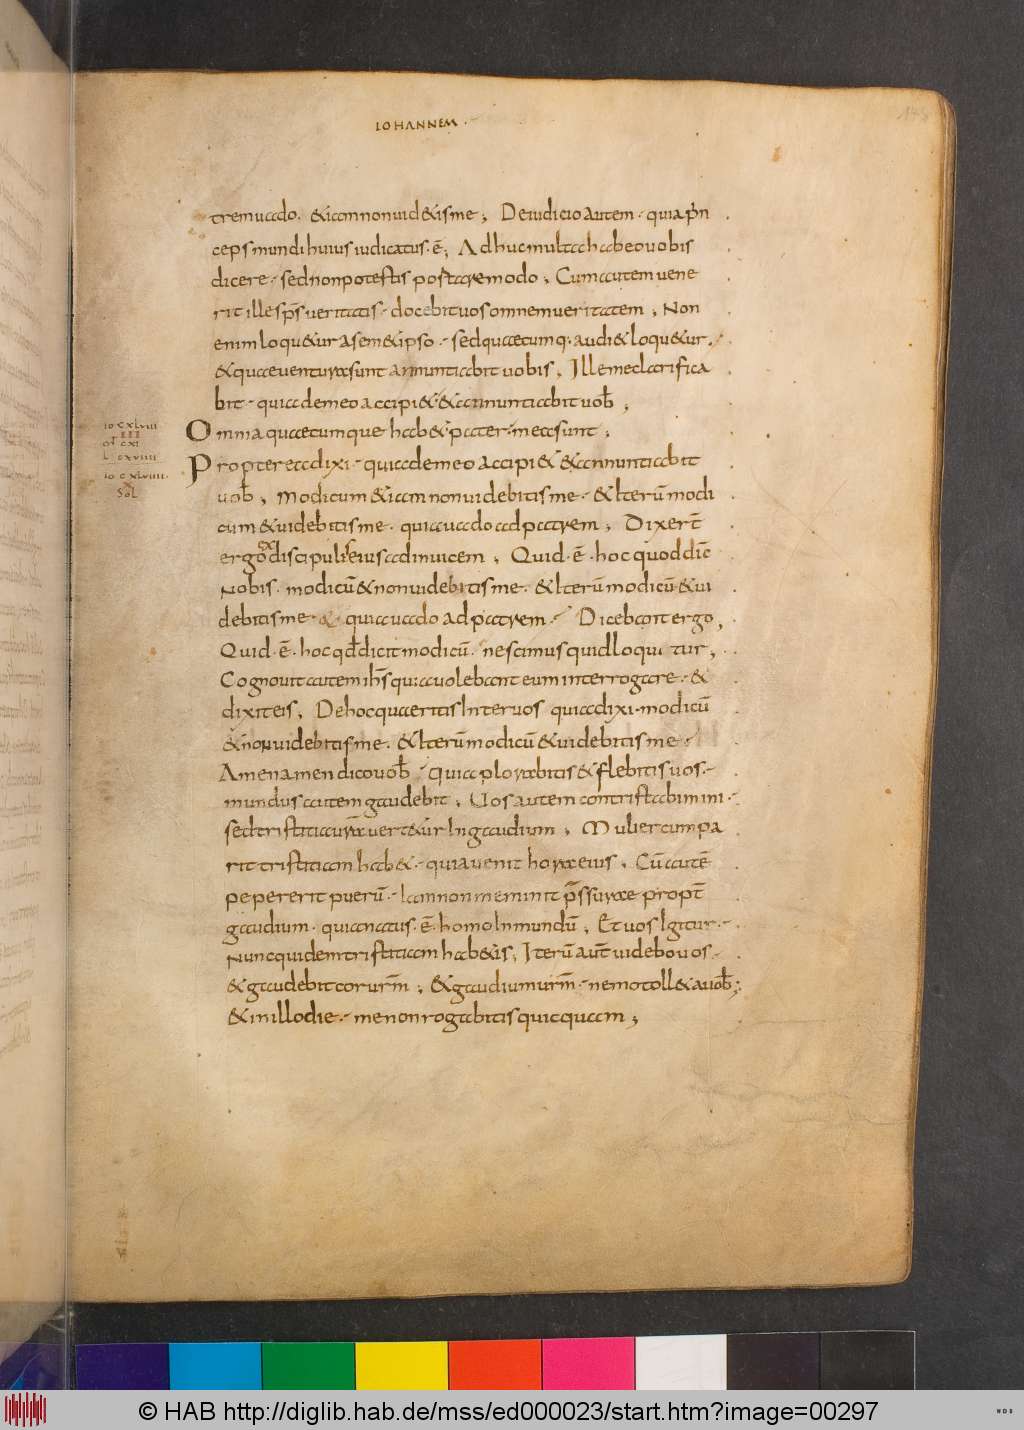 IOHANNEM ·
148
trem uado · & iam non uid&is me ; De iudicio autem · quia prīn
ceps mundi huius iudicatus · ē ; Adhuc multa habeo uobis
dicere · sed non potestis portare modo ; Cum autem uene
rit ille sp̄s ueritatis · docebit uos omnem ueritatem ; Non
enim loqu&ur a sem&ipso · sed quaecumq· audi& loqu&ur ·
& quae uentura sunt annuntiabit uobis ; Ille me clarifica
bit · quia de meo accipi& & annuntiabit uob̄ ;
Omnia quaecumque hab& pater · mea sunt ;
Propterea dixi · quia de meo accipi& & annuntiabit
uob̄ ; Modicum & iam non uidebitis me · & Iterū modi
cum & uidebitis me · quia uado ad patrem ; Dixert̄
ergo discipuli eius ad inuicem ; Quid · ē · hoc quod dic̄
nobis · modicū & non uidebitis me · & Iterū modicū & ui
debitis me · & quia uado ad patrem · Dicebant ergo ;
Quid · ē · hoc qd̄ dicit modicū · nescimus quid loquitur ;
Cognouit autem ih̄s quia uolebant eum interrogare · &
dixit eis ; De hoc quaeritis Inter uos quia dixi · modicū
& non uidebitis me · & Iterū modicū & uidebitis me ·
Amen amen dico uob̄ · quia plorabitis & flebitis uos ·
mundus autem gaudebit ; Uos autem contristabimini ·
sed tristitia ur̄a uert&ur In gaudium ; Mulier cum pa
rit tristitiam hab& · quia uenit hora eius ; Cū autē
pepererit puerū · Iam non meminit p̄ssurae propt̄
gaudium · quia natus · ē · homo In mundū ; Et uos Igitur ·
Nunc quidem tristitiam hab&is ; Iterū aut̄ uidebo uos ·
& gaudebit cor ur̄m ; & gaudium ur̄m · nemo toll& a uob̄ ;
& in illo die · me non rogabitis quicquam ;
io CXLVIII
III
CXI
L CXVIIII
io CXLVIIII ·
X
Sol
© HAB http://diglib.hab.de/mss/ed000023/start.htm?image=00297
WDB